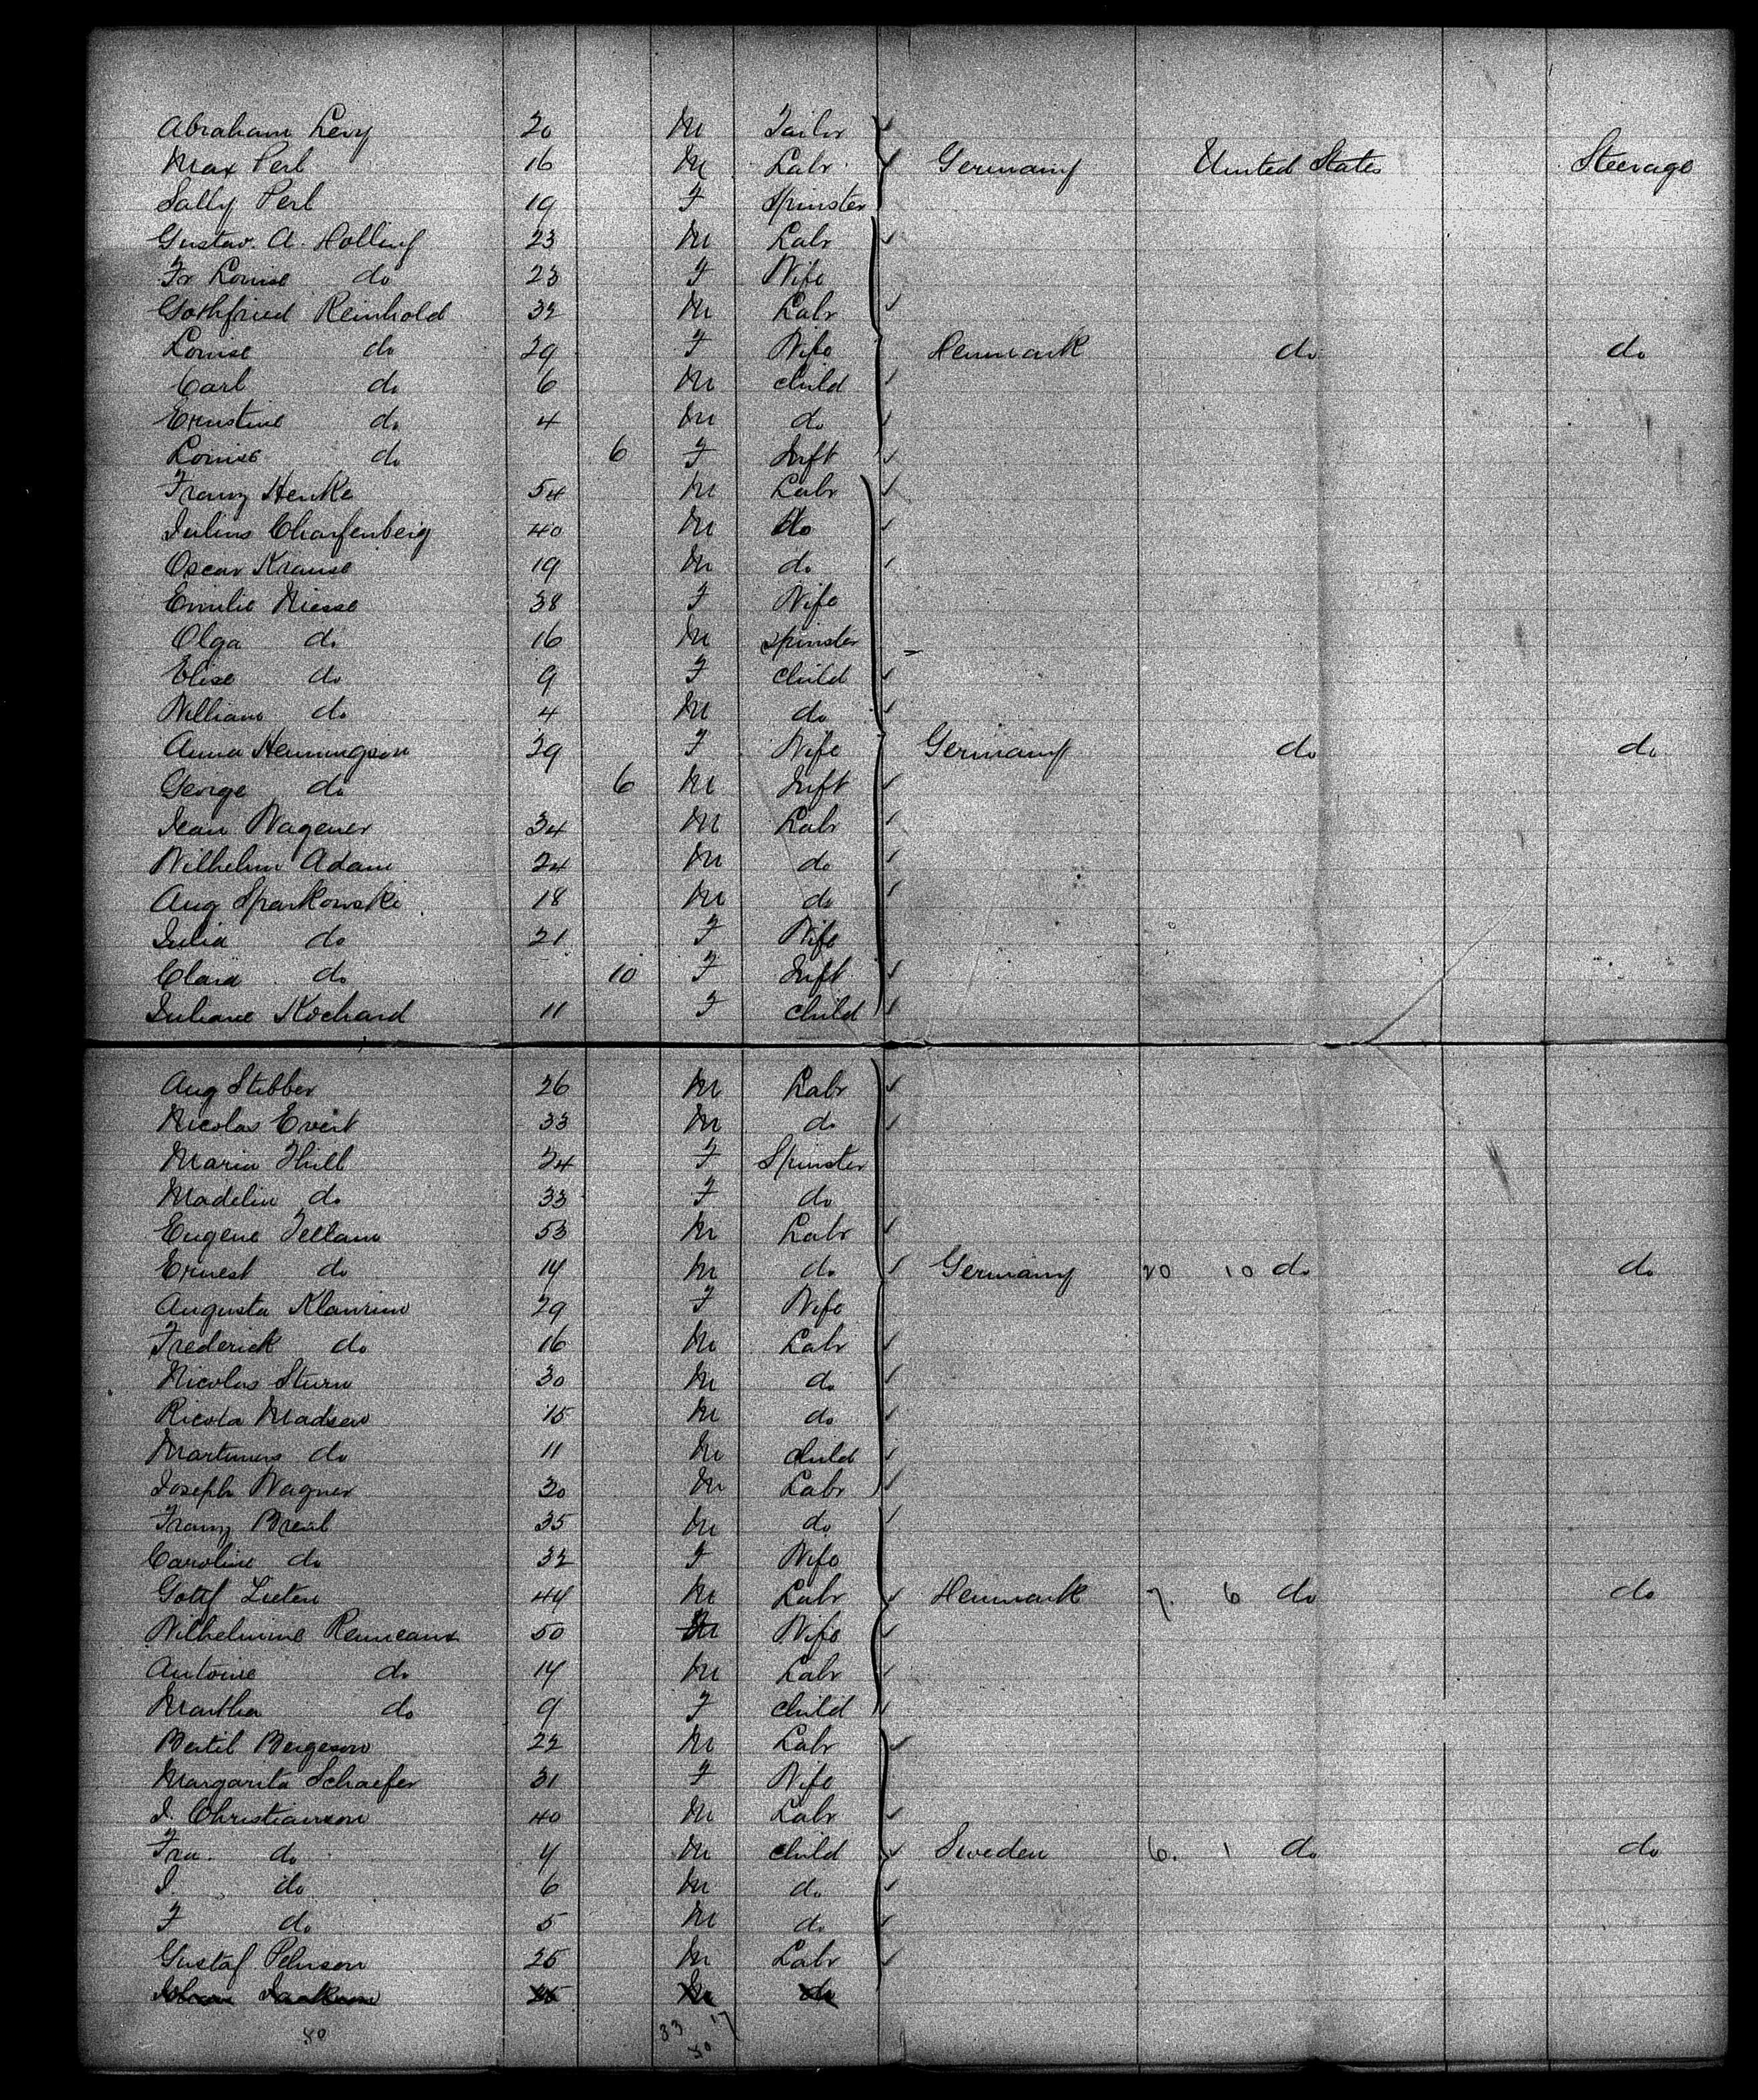 Abraham Levy 20 M Tailor
Max Perl 16 M Labr Germany United States Steerage
Sally Perl 19 F Spinster
Gustav. A. Holling 23 M Labr
Fr Louise do 23 F Wife
Gothfried Reinhold 32 M Labr
Louise do 29 F Wife Denmark do do
Carl do 6 M child
Ernstine do 4 M do
Louise do 6 F Inft
Franz Henke 54 M Labr
Julius Charfenberg 40 M do
Oscar Krause 19 M do
Emilie Niesse 38 F Wife
Olga do 16 M spinster
Elise do 9 F child
William do 4 M do
Anna Henningson 29 F Wife Germany do do
George do 6 M Inft
Jean Wagener 34 M Labr
Wilhelm Adam 24 M do
Aug Sparkowski 18 M do
Julia do 21 F Wife
Clara do 10 F Inft
Juliane Kochard 11 F child
Aug Stibber 26 M Labr
Nicolas Evert 33 M do
Maria Thill 24 F Spinster
Madelin do 33 F do
Eugene 53 M Labr
Ernest do 14 M do Germany 20 10 do do
Augusta 29 F Wife
Frederick do 16 M Labr
Nicolas Sturm 30 M do
Ricola Madsen 15 M do
Martinus do 11 M child
Joseph Wagner 30 M Labr
Franz 35 M do
Caroline do 32 F Wife
Gottf Lieten 44 M Labr Denmark 7. 6 do do
Wilhelmine Renneaux 50 Wife
Antoine do 14 M Labr
Martha do 9 F child
Bertil Bergeson 22 M Labr
Margarita Schaefer 31 F Wife
J. Christianson 40 M Labr
Fra do 4 M child Sweden 6. 1 do do
J. do 6 M do
F do 5 M do
Gustaf Pehrson 25 M Labr
50 33 17
50